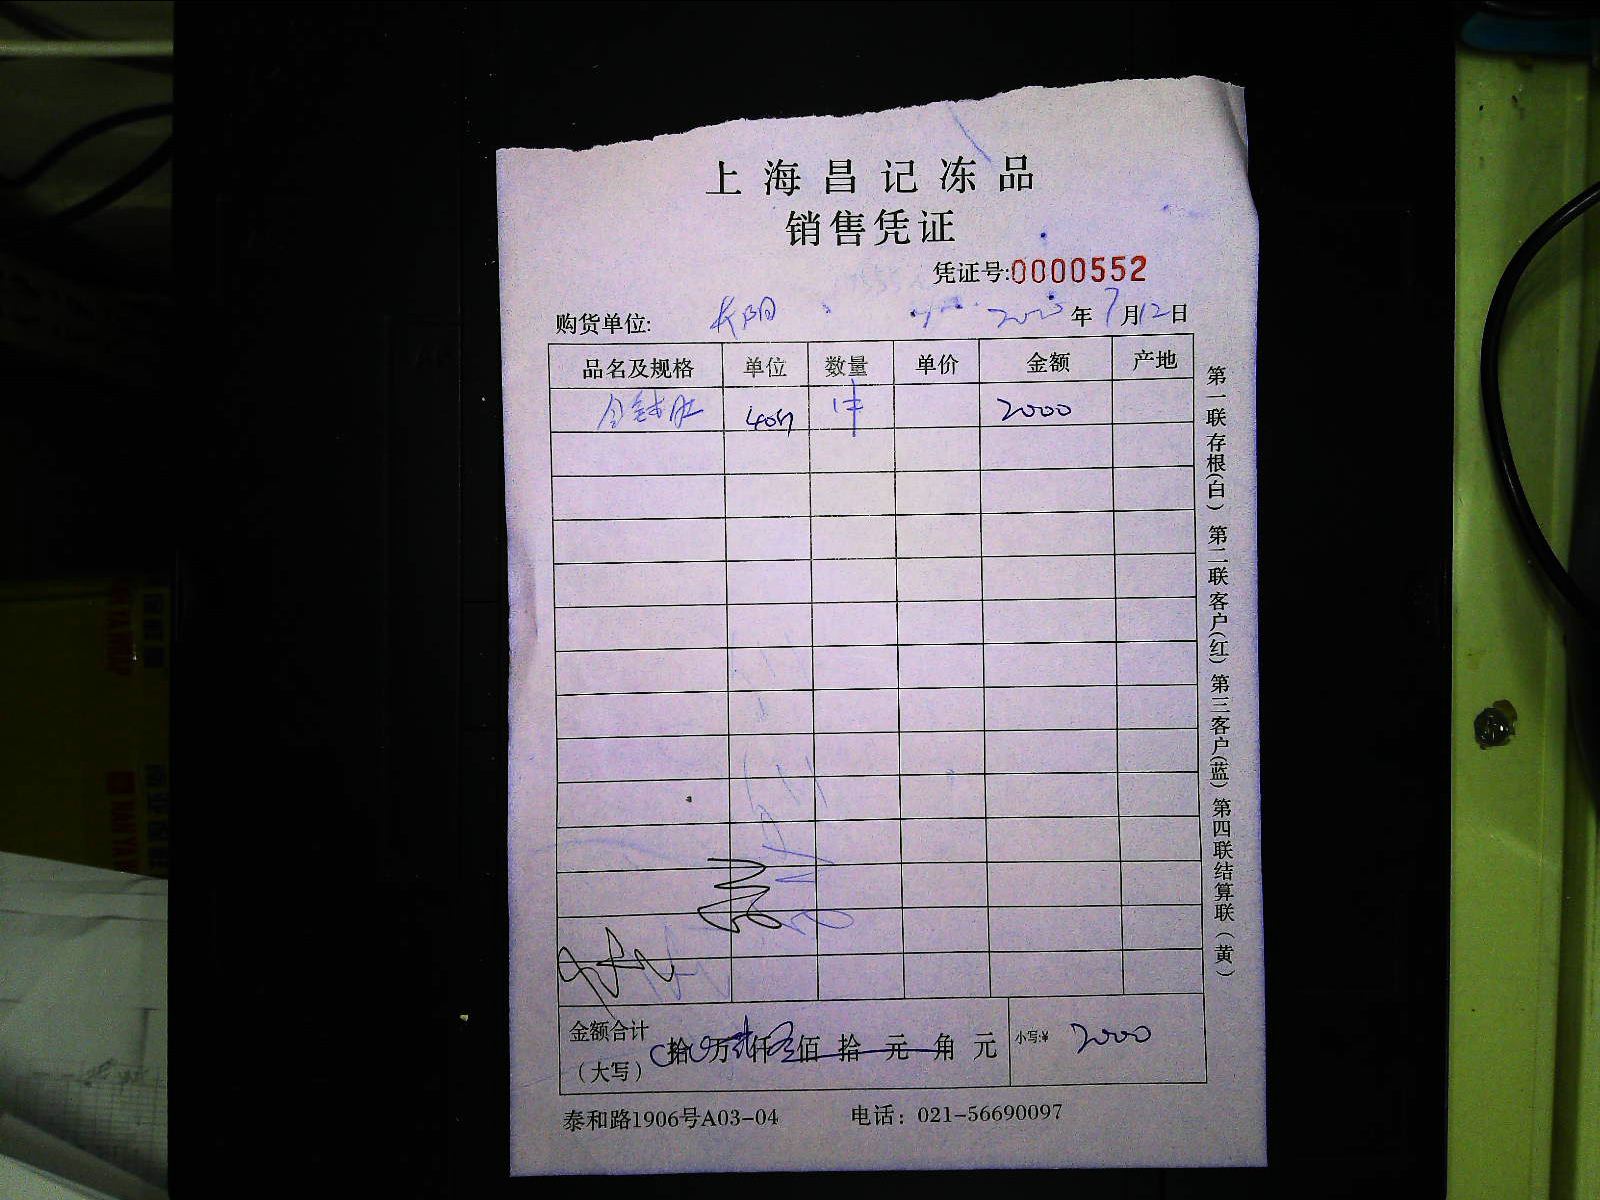 上海昌记冻品
销售凭证
凭证号:0000552
购货单位: 长阳 年7月12日
品名及规格 单位 数量 单价 金额 产地
金钱肚 1件 2000
金额合计(大写) 拾 万 仟 佰 拾 元 角 元 小写:¥ 2000
泰和路1906号A03-04 电话：021-56690097
第一联存根(白) 第二联客户(红) 第三客户(蓝) 第四联结算联(黄)